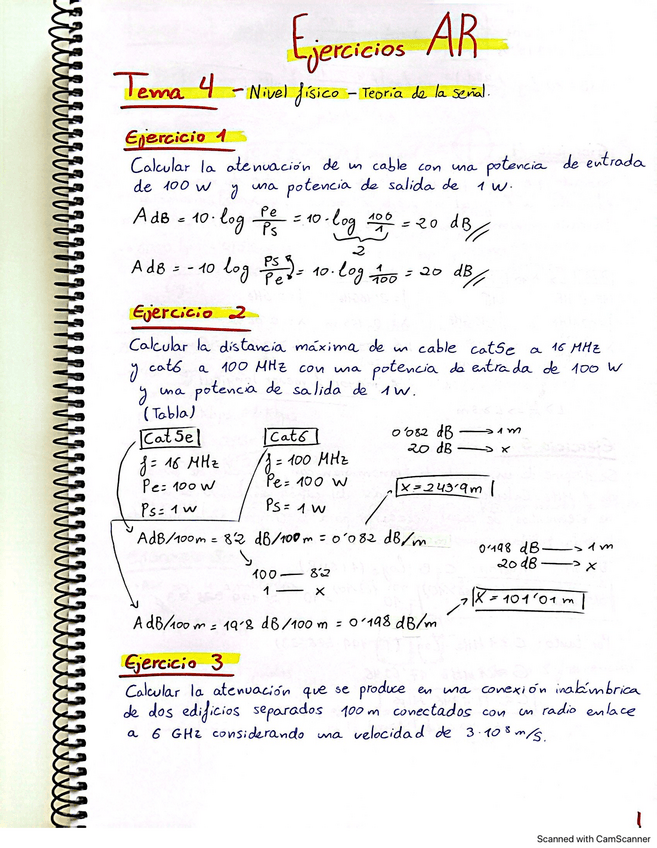 Ejercicios AR
Tema 4 - Nivel físico - Teoría de la señal.
Ejercicio 1
Calcular la atenuación de un cable con una potencia de entrada
de 100 W y una potencia de salida de 1 W.
A dB = 10·log Pe/Ps = 10·log 100/1 = 20 dB
2
A dB = -10 log Ps/Pe = 10·log 1/100 = 20 dB
Ejercicio 2
Calcular la distancia máxima de un cable cat5e a 16 MHz
y cat6 a 100 MHz con una potencia de entrada de 100 W
y una potencia de salida de 1W.
(Tabla)
Cat5e
f = 16 MHz
Pe = 100 W
Ps = 1 W
Cat6
f = 100 MHz
Pe = 100 W
Ps = 1 W
0'082 dB → 1 m
20 dB → x
x = 243'9 m
AdB/100m = 8'2 dB/100m = 0'082 dB/m
100 — 8'2
1 — x
0'198 dB → 1 m
20 dB → x
X = 101'01 m
A dB/100 m = 19'8 dB/100 m = 0'198 dB/m
Ejercicio 3
Calcular la atenuación que se produce en una conexión inalámbrica
de dos edificios separados 100 m conectados con un radio enlace
a 6 GHz considerando una velocidad de 3·10⁸ m/s.
1
Scanned with CamScanner